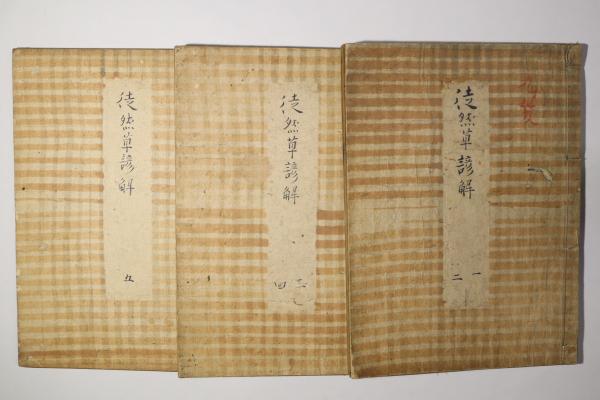 徒然草諺解
一
二
徒然草諺解
三
四
徒然草諺解
五